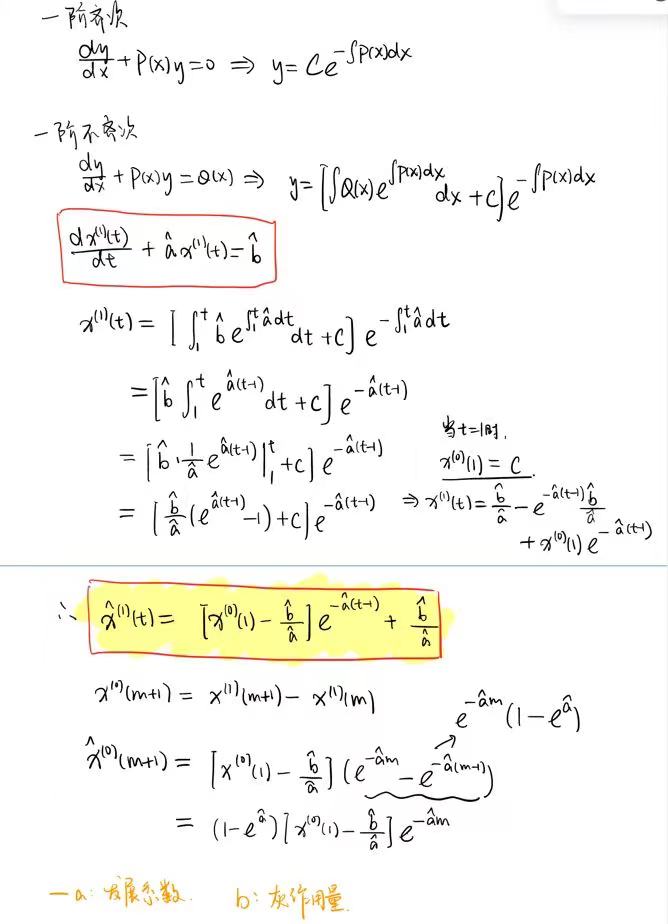 一阶齐次
dy/dx + P(x)y = 0 ⇒ y = Ce^{-∫P(x)dx}
一阶不齐次
dy/dx + P(x)y = Q(x) ⇒ y = [∫Q(x)e^{∫P(x)dx}dx + C]e^{-∫P(x)dx}
dx⁽¹⁾(t)/dt + âx⁽¹⁾(t) = b̂
x⁽¹⁾(t) = [∫₁ᵗ b̂e^{∫₁ᵗâdt}dt + C]e^{-∫₁ᵗâdt}
= [b̂∫₁ᵗe^{â(t-1)}dt + C]e^{-â(t-1)}
= [b̂·1/â e^{â(t-1)}|₁ᵗ + C]e^{-â(t-1)}
= [b̂/â(e^{â(t-1)} - 1) + C]e^{-â(t-1)}
当t=1时,
x⁽⁰⁾(1) = C.
⇒ x⁽¹⁾(t) = b̂/â - e^{-â(t-1)}b̂/â
+ x⁽⁰⁾(1)e^{-â(t-1)}
∴ x̂⁽¹⁾(t) = [x⁽⁰⁾(1) - b̂/â]e^{-â(t-1)} + b̂/â
x⁽⁰⁾(m+1) = x⁽¹⁾(m+1) - x⁽¹⁾(m)
e^{-âm}(1-e^{â})
x̂⁽⁰⁾(m+1) = [x⁽⁰⁾(1) - b̂/â](e^{-âm} - e^{-â(m-1)})
= (1-e^{â})[x⁽⁰⁾(1) - b̂/â]e^{-âm}
-a: 发展系数. b: 灰作用量.